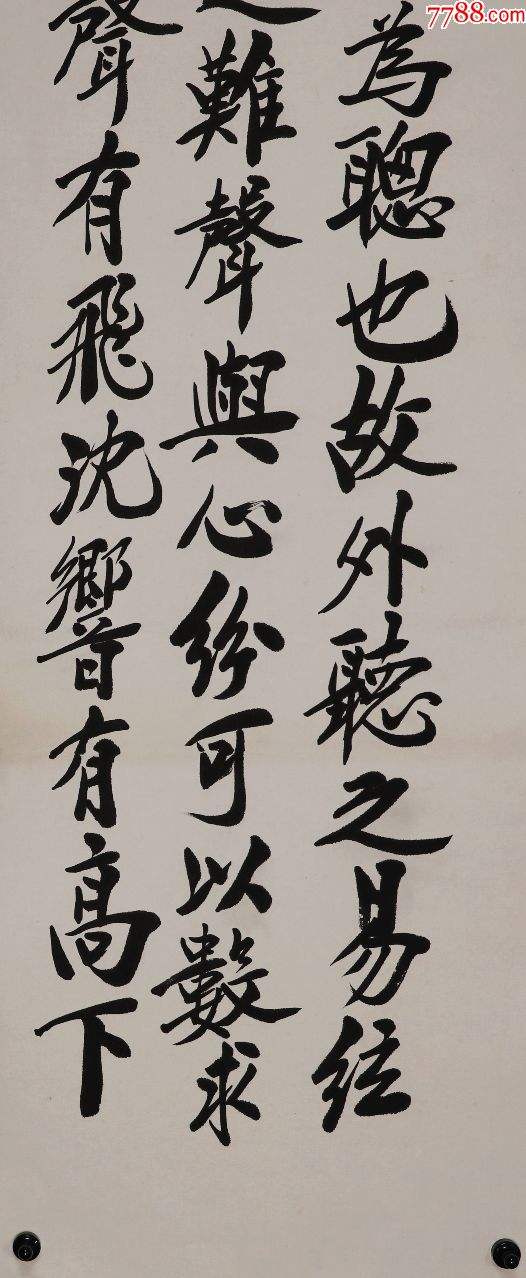 7788.com
為聰也故外聽之易絃
難聲與心紛可以數求
聲有飛沈響有高下